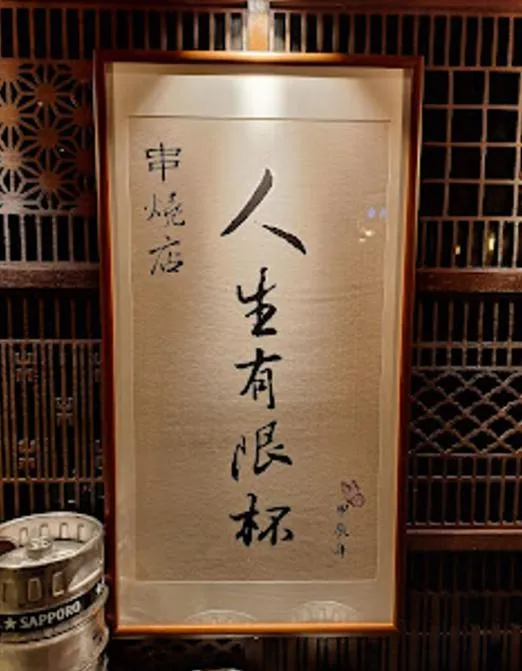 串燒店
人生有限杯
甲辰年
★ SAPPORO ★